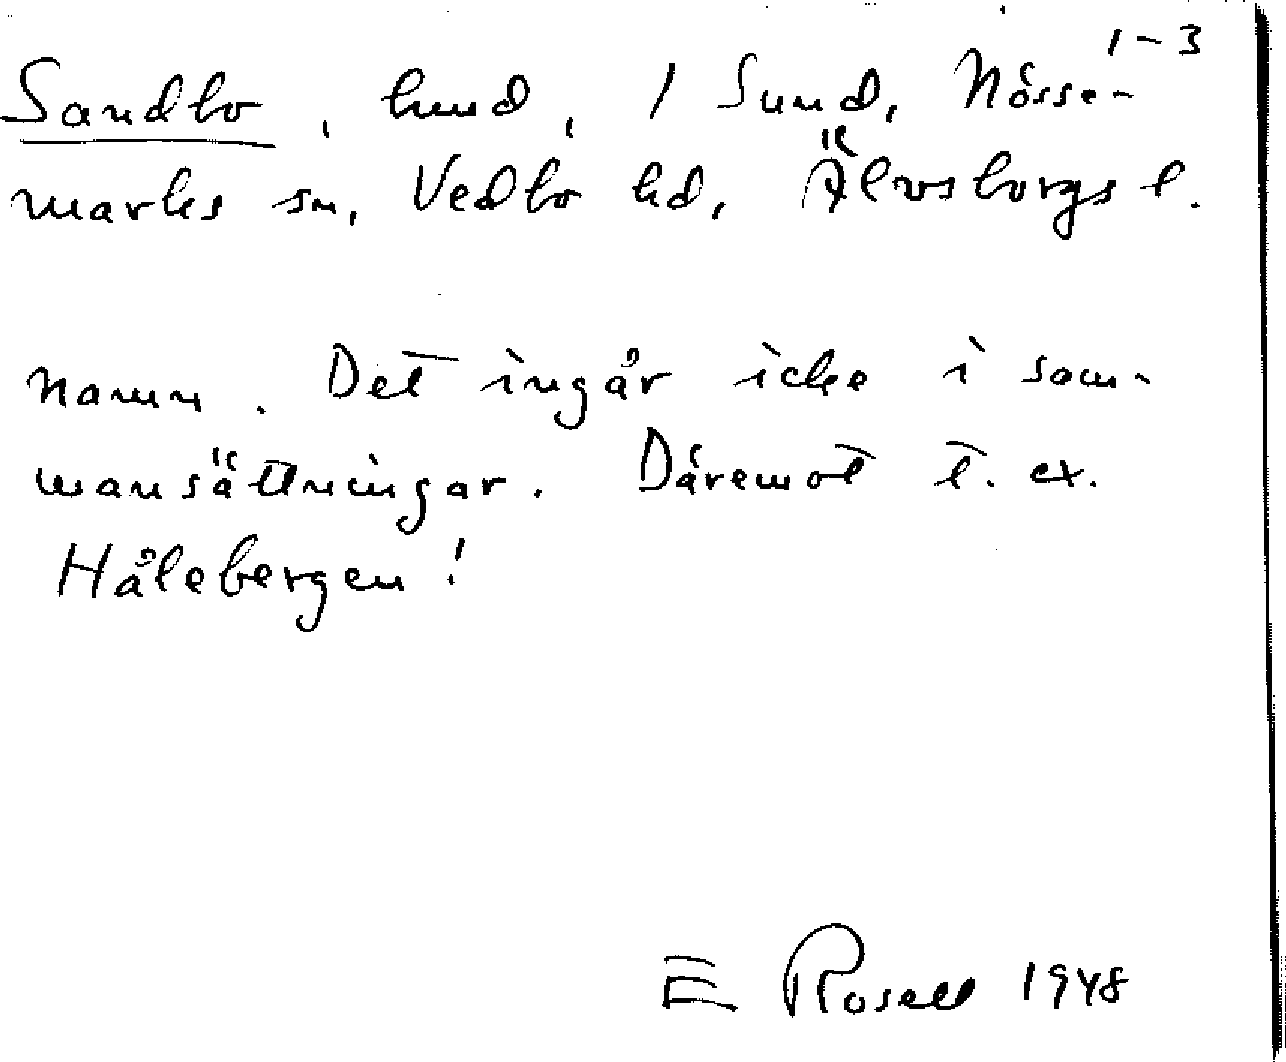 Sandbo, hmd, 1 Sund, Nösse-1-3
marks sn, Vedbo hd, Älvsborgs l.
namn. Det ingår icke i sam-
mansättningar. Däremot t. ex.
Hålebergen!
E Rosell 1948